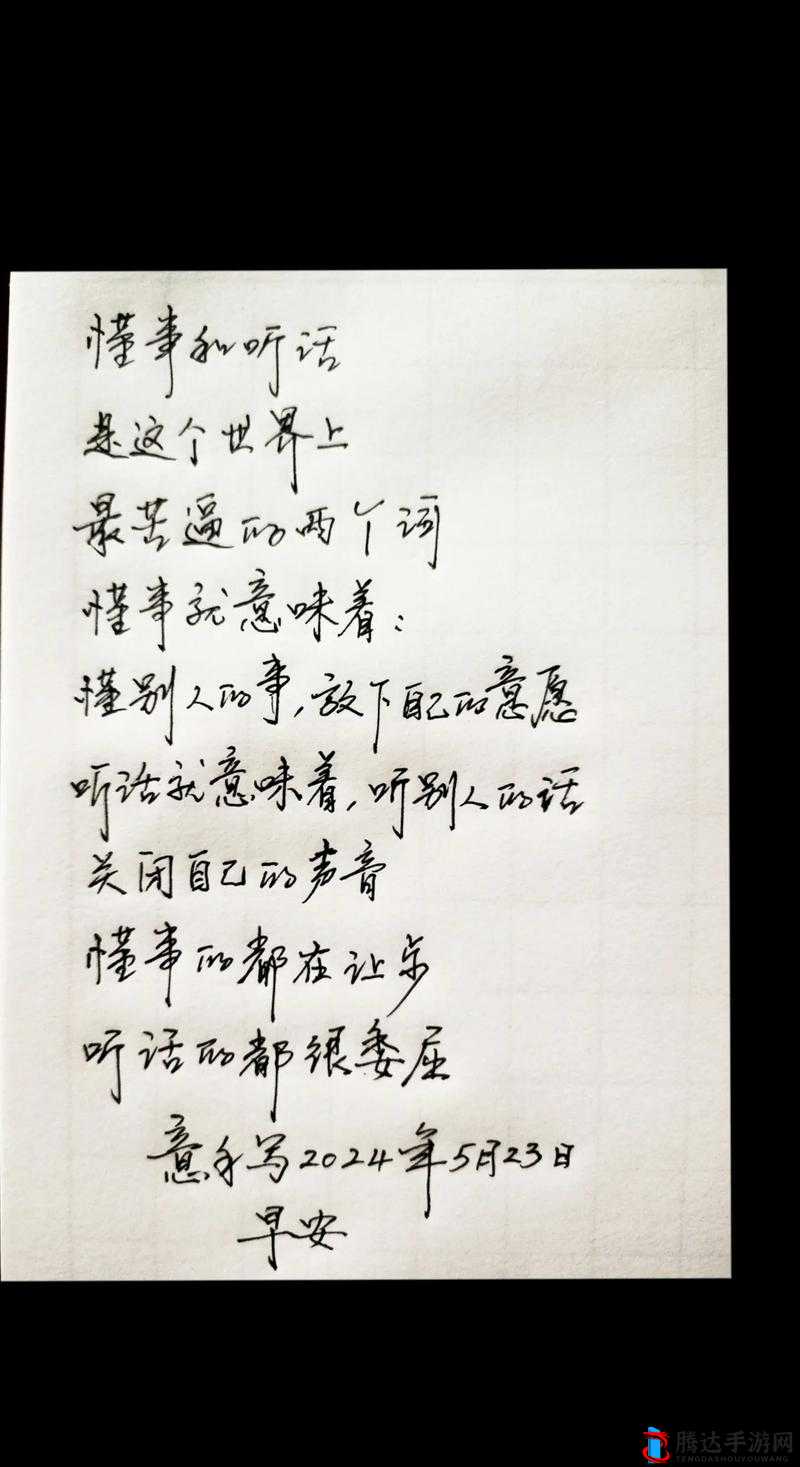 懂事和听话
是这个世界上
最苦逼的两个词
懂事就意味着：
懂别人的事，放下自己的意愿
听话就意味着，听别人的话
关闭自己的声音
懂事的都在让步
听话的都很委屈
意手写2024年5月23日
早安
腾达手游网
TENGDASHOUYOUWANG